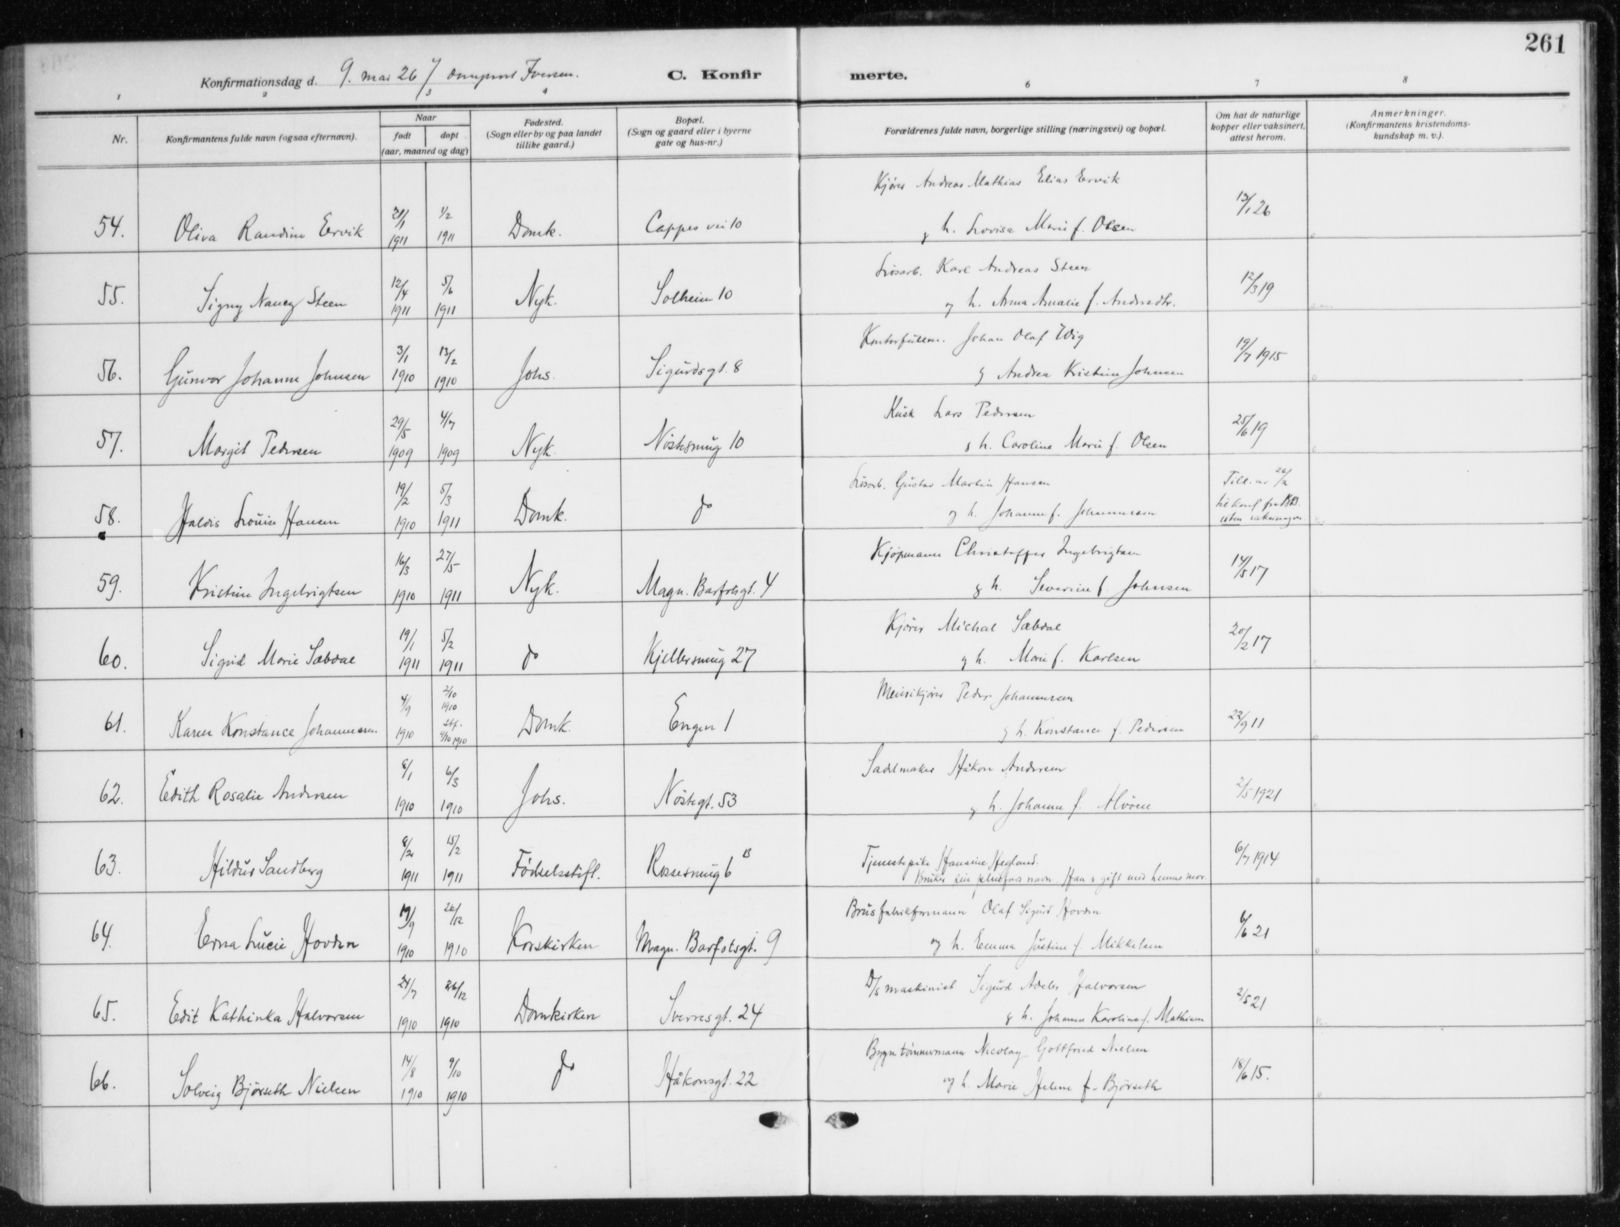 261
Konfirmationsdag d. 9. mai 26 Iversen.
C. Konfirmerte.
1 2 3 4 6 7 8
Nr.
Konfirmantens fulde navn (ogsaa efternavn).
Naar
født
døpt
(aar, maaned og dag)
Fødested.
(Sogn eller by og paa landet
tillike gaard.)
Bopæl.
(Sogn og gaard eller i byerne
gate og hus-nr.)
Forældrenes fulde navn, borgerlige stilling (næringsvei) og bopæl.
Om hat de naturlige
kopper eller vaksinert,
attest herom.
Anmerkninger.
(Konfirmantens kristendoms-
kundskap m. v.).
Kjører Andreas Mathias Elias Ervik
54. Oliva Randine Ervik 21/1 1911 1/2 1911 Domk. Cappes vei 10 g h. Lovise Marie f. Olsen 13/1 26
Løsarb. Karl Andreas Steen
55. Signy Nancy Steen 12/4 1911 5/6 1911 Nyk. Solheim 10 og h. Anna Amalie f. Andersdtr. 12/3 19
Kontorfullm. Johan Olaf Wiig
56. Gunvor Johanne Johnsen 3/1 1910 13/2 1910 Johs. Sigurdsgt. 8 g Andrea Kristine Johnsen 19/7 1915
Kusk Lars Pedersen
57. Margit Pedersen 29/5 1909 4/7 1909 Nyk. Nöstesmug 10 g h. Caroline Marie f. Olsen 25/6 19
Løsarb. Gustav Martin Hansen
58. Haldis Hansen 19/2 1910 5/3 1911 Domk. do og h. Johanne f. Johannessen
Till. av 26/2
til konf. fra
uten vaksinasjon
Kjøpmann Christoffer Ingebrigtsen
59. Kristine Ingebrigtsen 16/3 1910 27/5 1911 Nyk. Magn. Barfotsgt. 4 g h. Severine f. Johnsen 14/5 17
Kjører Michal Sæbdal
60. Sigrid Marie Sæbdal 19/1 1911 5/2 1911 do Kjellersmug 27 g h. Marie f. Karlsen 20/2 17
Peder Johannessen
61. Karen Konstance Johannessen 4/9 1910 2/10 1910 Domk. Engen 1 g h. Konstance f. Pedersen 22/9 11
Sadelmaker Håkon Andersen
62. Edith Rosalie Andersen 8/1 1910 6/3 1910 Johs. Nöstegt. 53 g h. Johanne f. Alvöen 2/5 1921
63. Hildur Sandberg 8/2 1911 15/2 1911 Födselsstift. Rosesmug 6 B Tjenestepike Hansine Hegland. 6/7 1914
Bruker sin pleiefars navn. Han e gift med hennes mor.
Brusfabrikformann Olaf Sigurd Hovden
64. Erna Lucie Hovden 19/9 1910 26/12 1910 Korskirken Magn. Barfotsgt. 9 og h. Emma Justine f. Mikkelsen 6/6 21
D/s maskinist Sigurd Adler Halvorsen
65. Edit Kathinka Halvorsen 24/7 1910 26/12 1910 Domkirken Sverresgt. 24 g h. Johanne Karoline f. Mathisen 2/5 21
Bygn.tømmermann Nicolay Gottfred Nielsen
66. Solveig Björseth Nielsen 14/8 1910 9/10 1910 do Håkonsgt. 22 og h. Marie Helene f. Björseth 18/6 15.